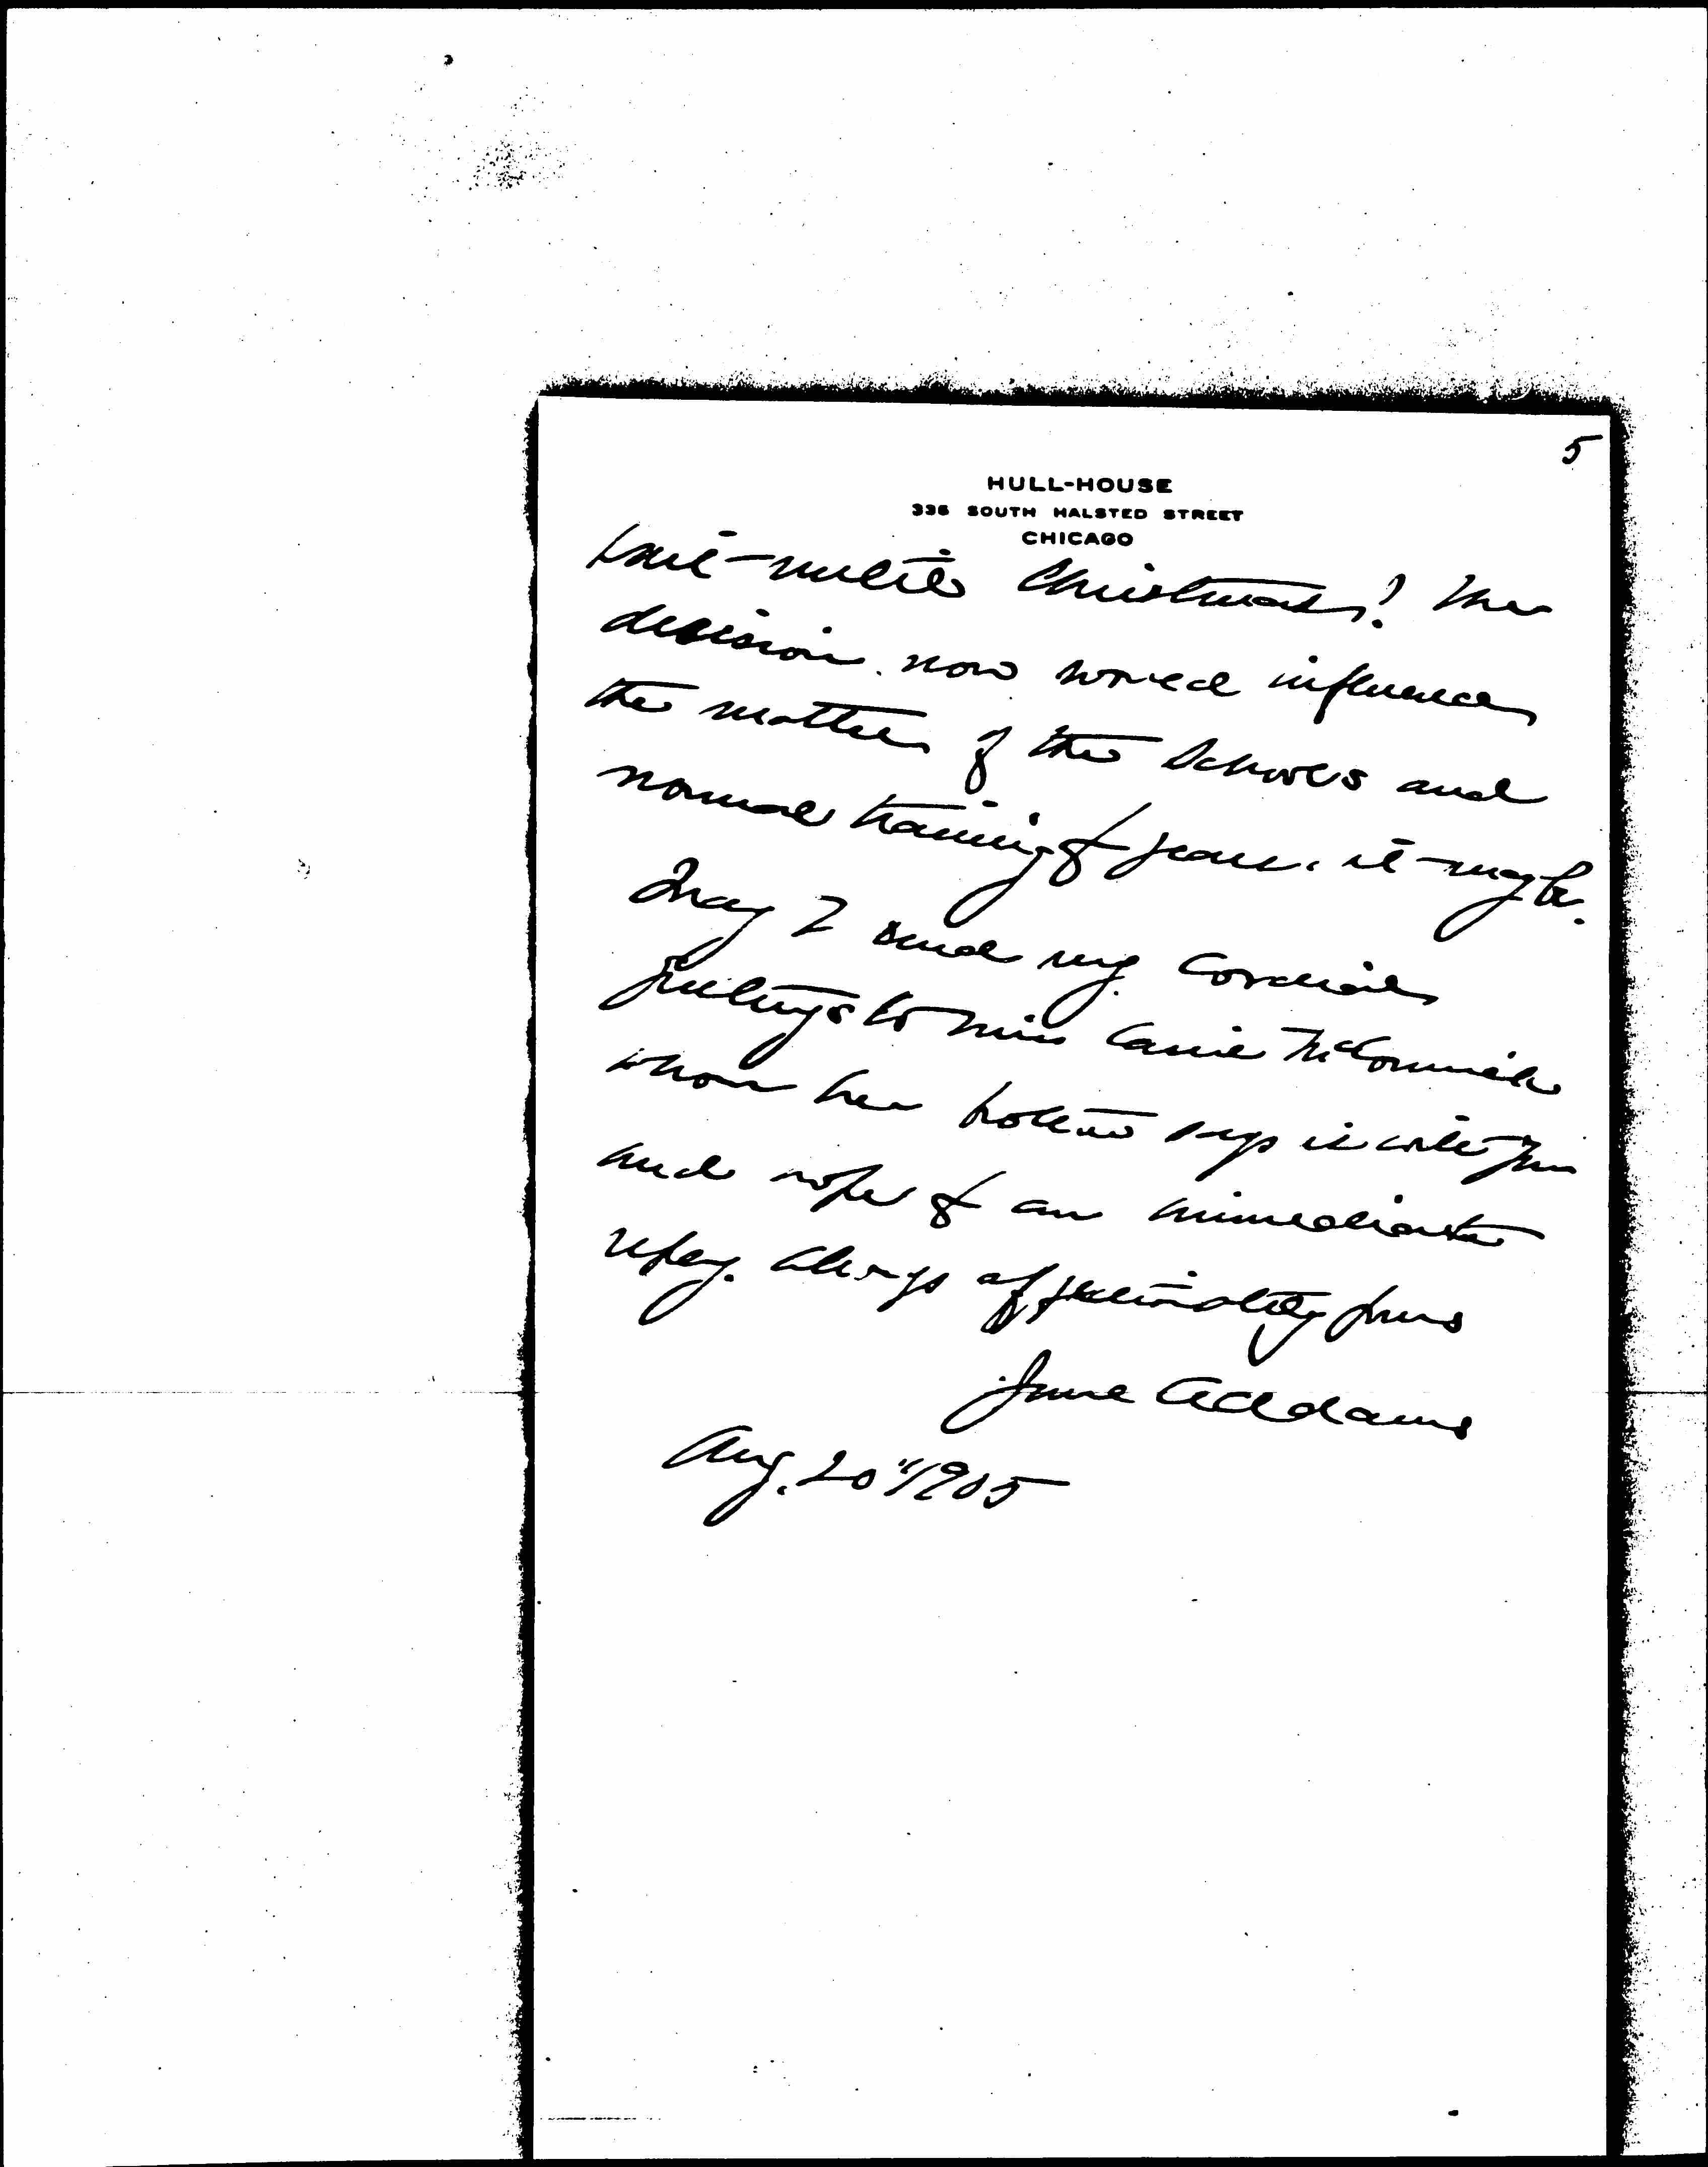 5
HULL-HOUSE
335 SOUTH HALSTED STREET
CHICAGO
wait until Christmas! The
decision now would influence
the matter of the Schools and
normal training for years, it may be.
May I send my cordial
greetings to Miss Carrie McCormick
whom her brother says is with you
and hope for an immediate
reply. Always affectionately yours
Jane Addams
Aug. 20" 1905